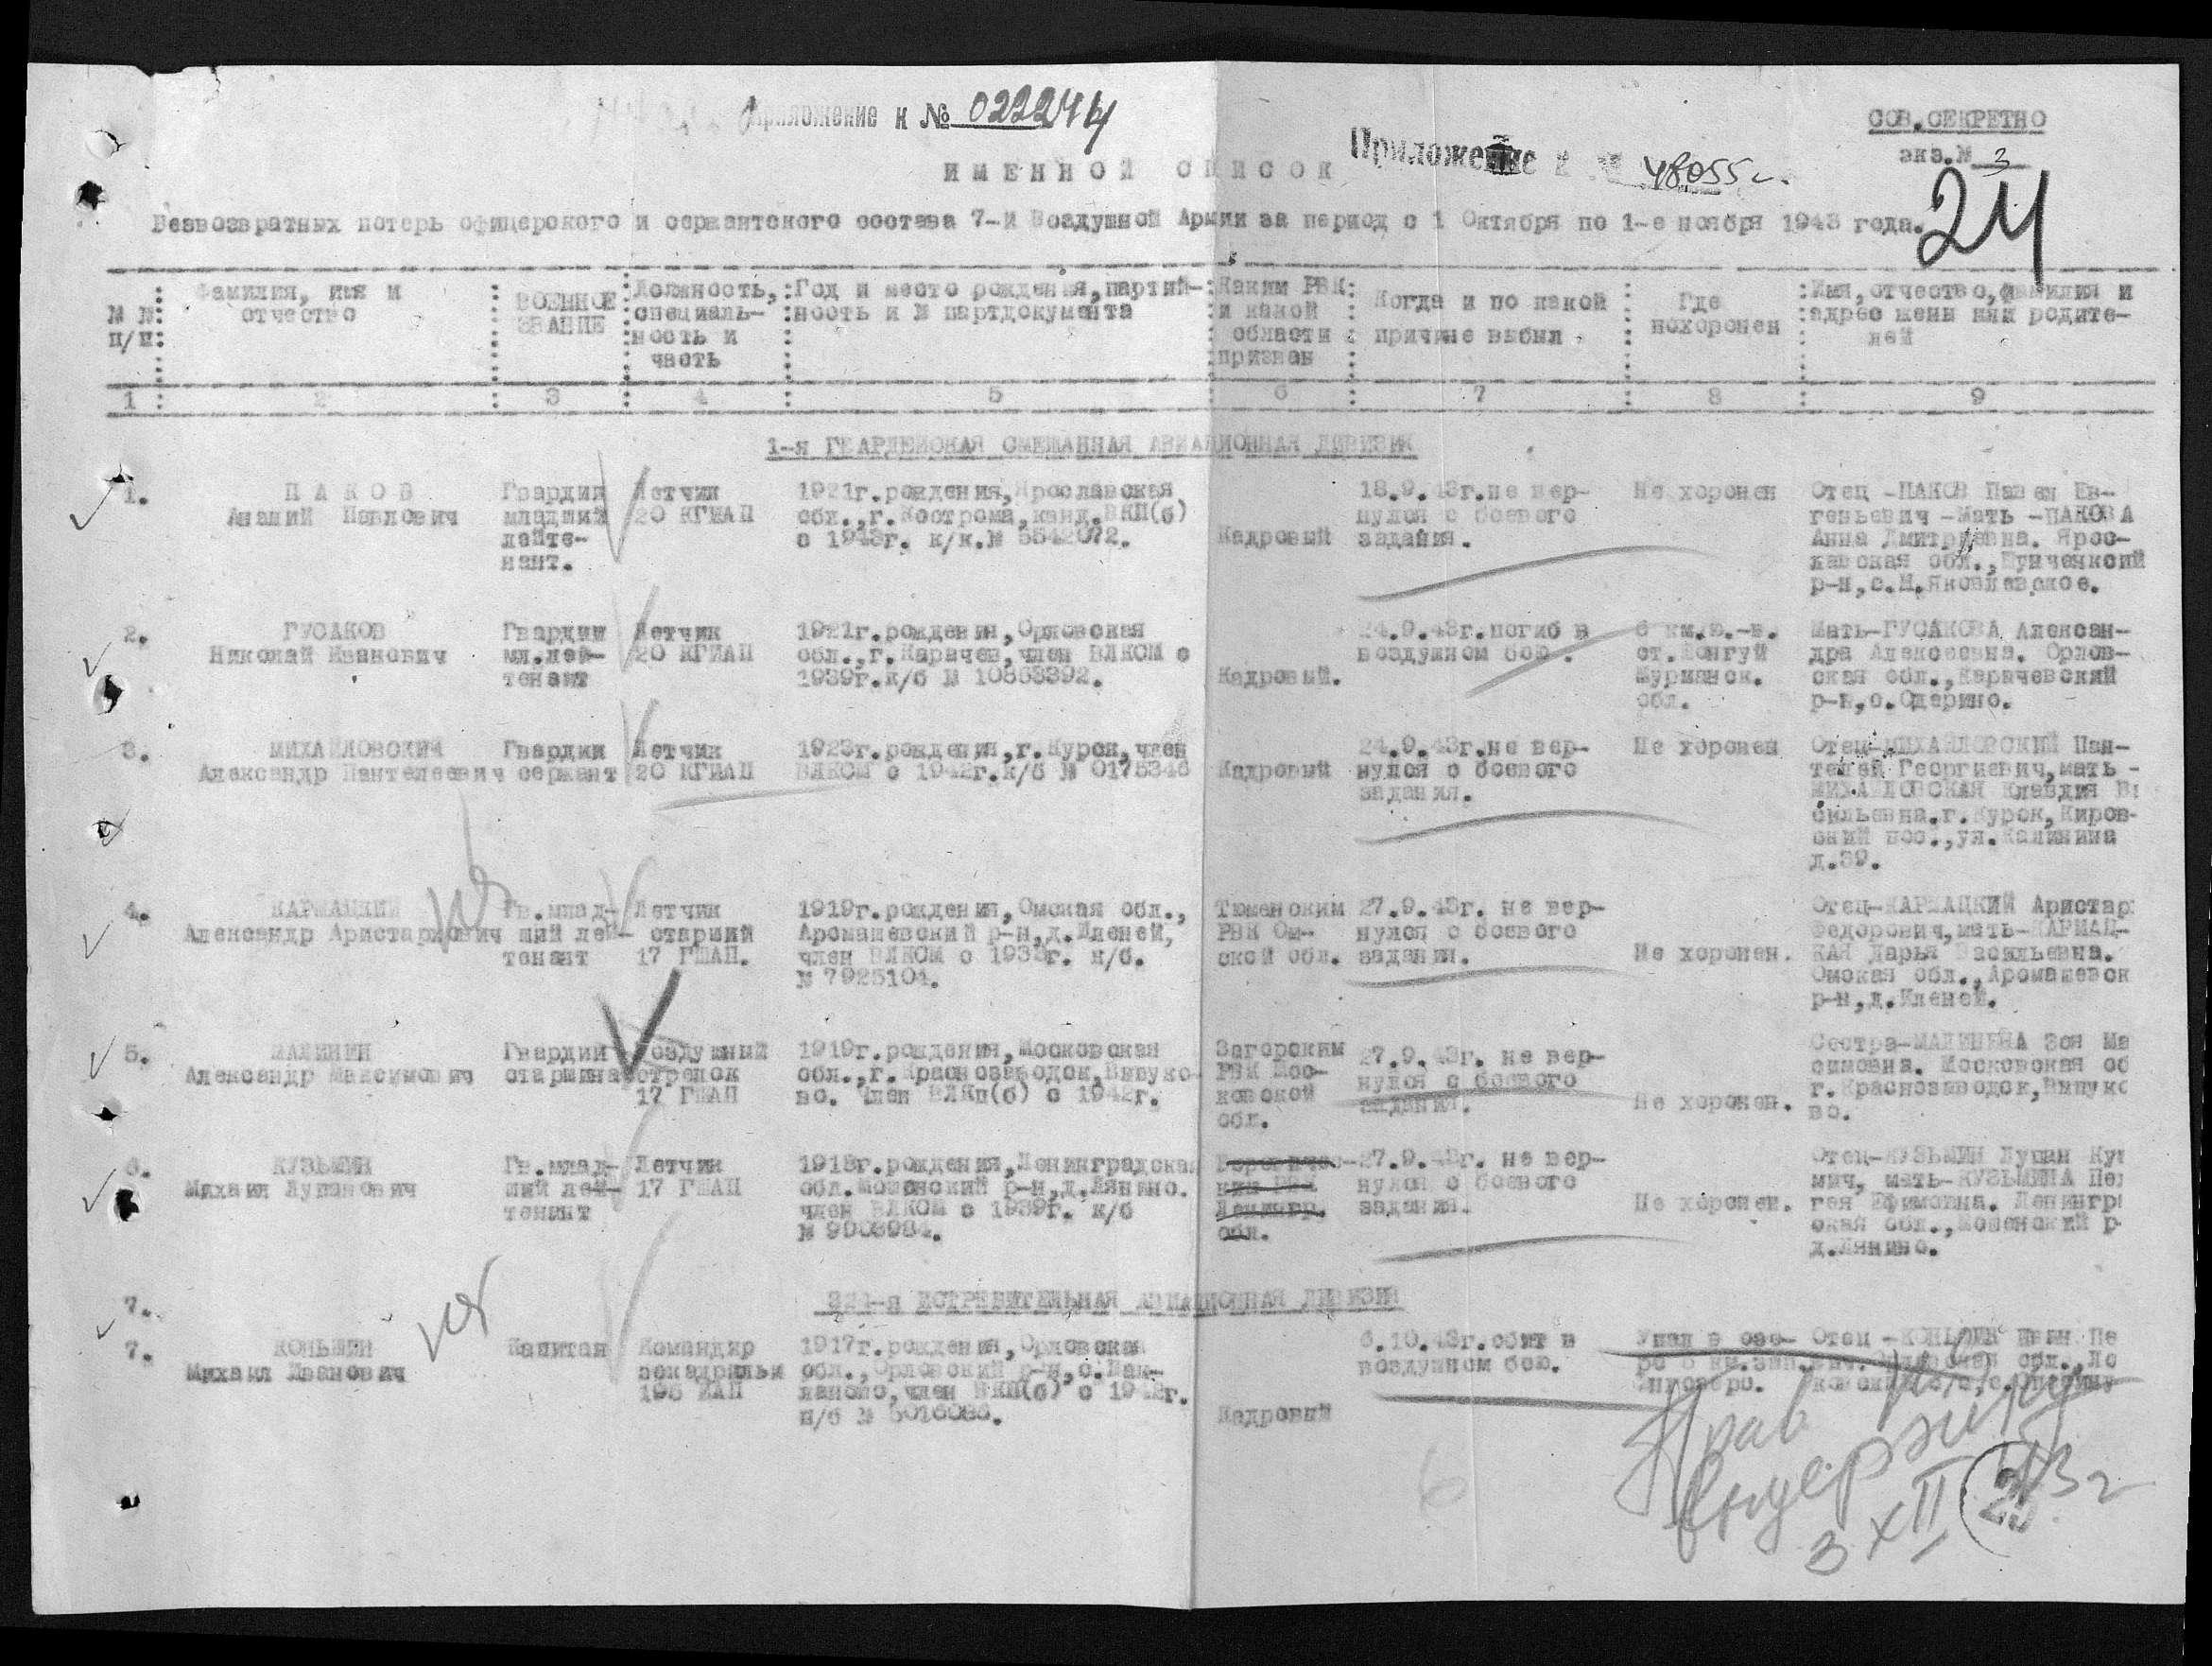 Приложение к № 022244
СОВ.СЕКРЕТНО
экз.№ 3
ИМЕННОЙ СПИСОК
Приложение к № 48055с.
24
Безвозвратных потерь офицерского и сержантского состава 7-й Воздушной Армии за период с 1 Октября по 1-е ноября 1943 года.
№ №
п/п
Фамилия, имя и
отчество
ВОЕННОЕ
ЗВАНИЕ
Должность,
специаль-
ность и
часть
Год и место рождения, партий-
ность и № партдокумента
Каким РВК
и какой
области
призван
Когда и по какой
причине выбыл
Где
похоронен
Имя, отчество, фамилия и
адрес жены или родите-
лей
1 2 3 4 5 6 7 8 9
1-я ГВАРДЕЙСКАЯ СМЕШАННАЯ АВИАЦИОННАЯ ДИВИЗИЯ
1.
ПАКОВ
Ананий Павлович
Гвардии
младший
лейте-
нант.
Летчик
20 КГИАП
1921г.рождения, Ярославская
обл., г.Кострома, канд.ВКП(б)
с 1943г. к/к.№ 5542072.
Кадровый
18.9.43г.не вер-
нулся с боевого
задания.
Не хоронен
Отец -ПАКОВ Павел Ев-
геньевич -Мать -ПАКОВА
Анна Дмитриевна. Ярос-
лавская обл.,
р-н, с.М.Яковлевское.
2.
ГУСАКОВ
Николай Иванович
Гвардии
мл.лей-
тенант
Летчик
20 КГИАП
1921г.рождения, Орловская
обл., г.Карачев, член ВЛКСМ с
1939г.к/б № 10853392.
Кадровый.
24.9.43г.погиб в
воздушном бою.
6 км.ю.-в.
ст.Лонгуй
Мурманск.
обл.
Мать-ГУСАКОВА Алексан-
дра Алексеевна. Орлов-
ская обл., Карачевский
р-н, с.Одерино.
3.
МИХАЙЛОВСКИЙ
Александр Пантелеевич
Гвардии
сержант
Летчик
20 КГИАП
1923г.рождения, г.Курск, член
ВЛКСМ с 1942г.к/б № 0175346
Кадровый
24.9.43г.не вер-
нулся с боевого
задания.
Не хоронен
Отец-МИХАЙЛОВСКИЙ Пан-
телей Георгиевич, мать -
МИХАЙЛОВСКАЯ Клавдия В
сильевна.г.Курск, Киров-
ский пос., ул.Калинина
д.39.
4.
КАРМАЦКИЙ
Александр Аристархович
Гв.млад-
ший лей-
тенант
Летчик
старший
17 ГШАП.
1919г.рождения, Омская обл.,
Аромашевский р-н, д.Кленей,
член ВЛКСМ с 1938г. к/б.
№ 7925104.
Тюменским
РВК Ом-
ской обл.
27.9.43г. не вер-
нулся с боевого
задания.
Не хоронен.
Отец-КАРМАЦКИЙ Аристар
Федорович, мать-КАРМАЦ-
КАЯ Дарья Васильевна.
Омская обл., Аромашевск
р-н, д.Кленей.
5.
МАЛИНИН
Александр Максимович
Гвардии
старшина
Воздушный
стрелок
17 ГШАП
1919г.рождения, Московская
обл., г.Краснозаводск, Выпуко-
во. Член ВЛКп(б) с 1942г.
Загорским
РВК Мос-
ковской
обл.
27.9.43г. не вер-
нулся с боевого
задания.
Не хоронен.
Сестра-МАЛИНИНА Зоя Ма
симовна. Московская об
г.Краснозаводск, Выпуко
во.
6.
КУЗЬМИН
Михаил Лупанович
Гв.млад-
ший лей-
тенант
Летчик
17 ГШАП
1918г.рождения, Ленинградская
обл.Мошенский р-н, д.Лянино.
член ВЛКСМ с 1939г. к/б
№ 9508984.
Ленингр.
обл.
27.9.43г. не вер-
нулся с боевого
задания.
Не хоронен.
Отец-КУЗЬМИН Лупан Ку
мич, мать-КУЗЬМИНА Пе
гея Ефимовна. Ленингр
ская обл., Мошенский р
д.Лянино.
7.
324-я ИСТРЕБИТЕЛЬНАЯ АВИАЦИОННАЯ ДИВИЗИЯ
7.
КОНЬШИН
Михаил Иванович
Капитан
Командир
эскадрильи
195 ИАП
1917г.рождения, Орловская
обл., Орловский р-н,
член ВКП(б) с 1942г.
п/б № 5016086.
Кадровый
6.10.43г.сбит в
воздушном бою.
Упал в озе-
ро 5 км.зап.
Отец -КОНЬШИН Иван Пе
6
3 XII 43 г
25